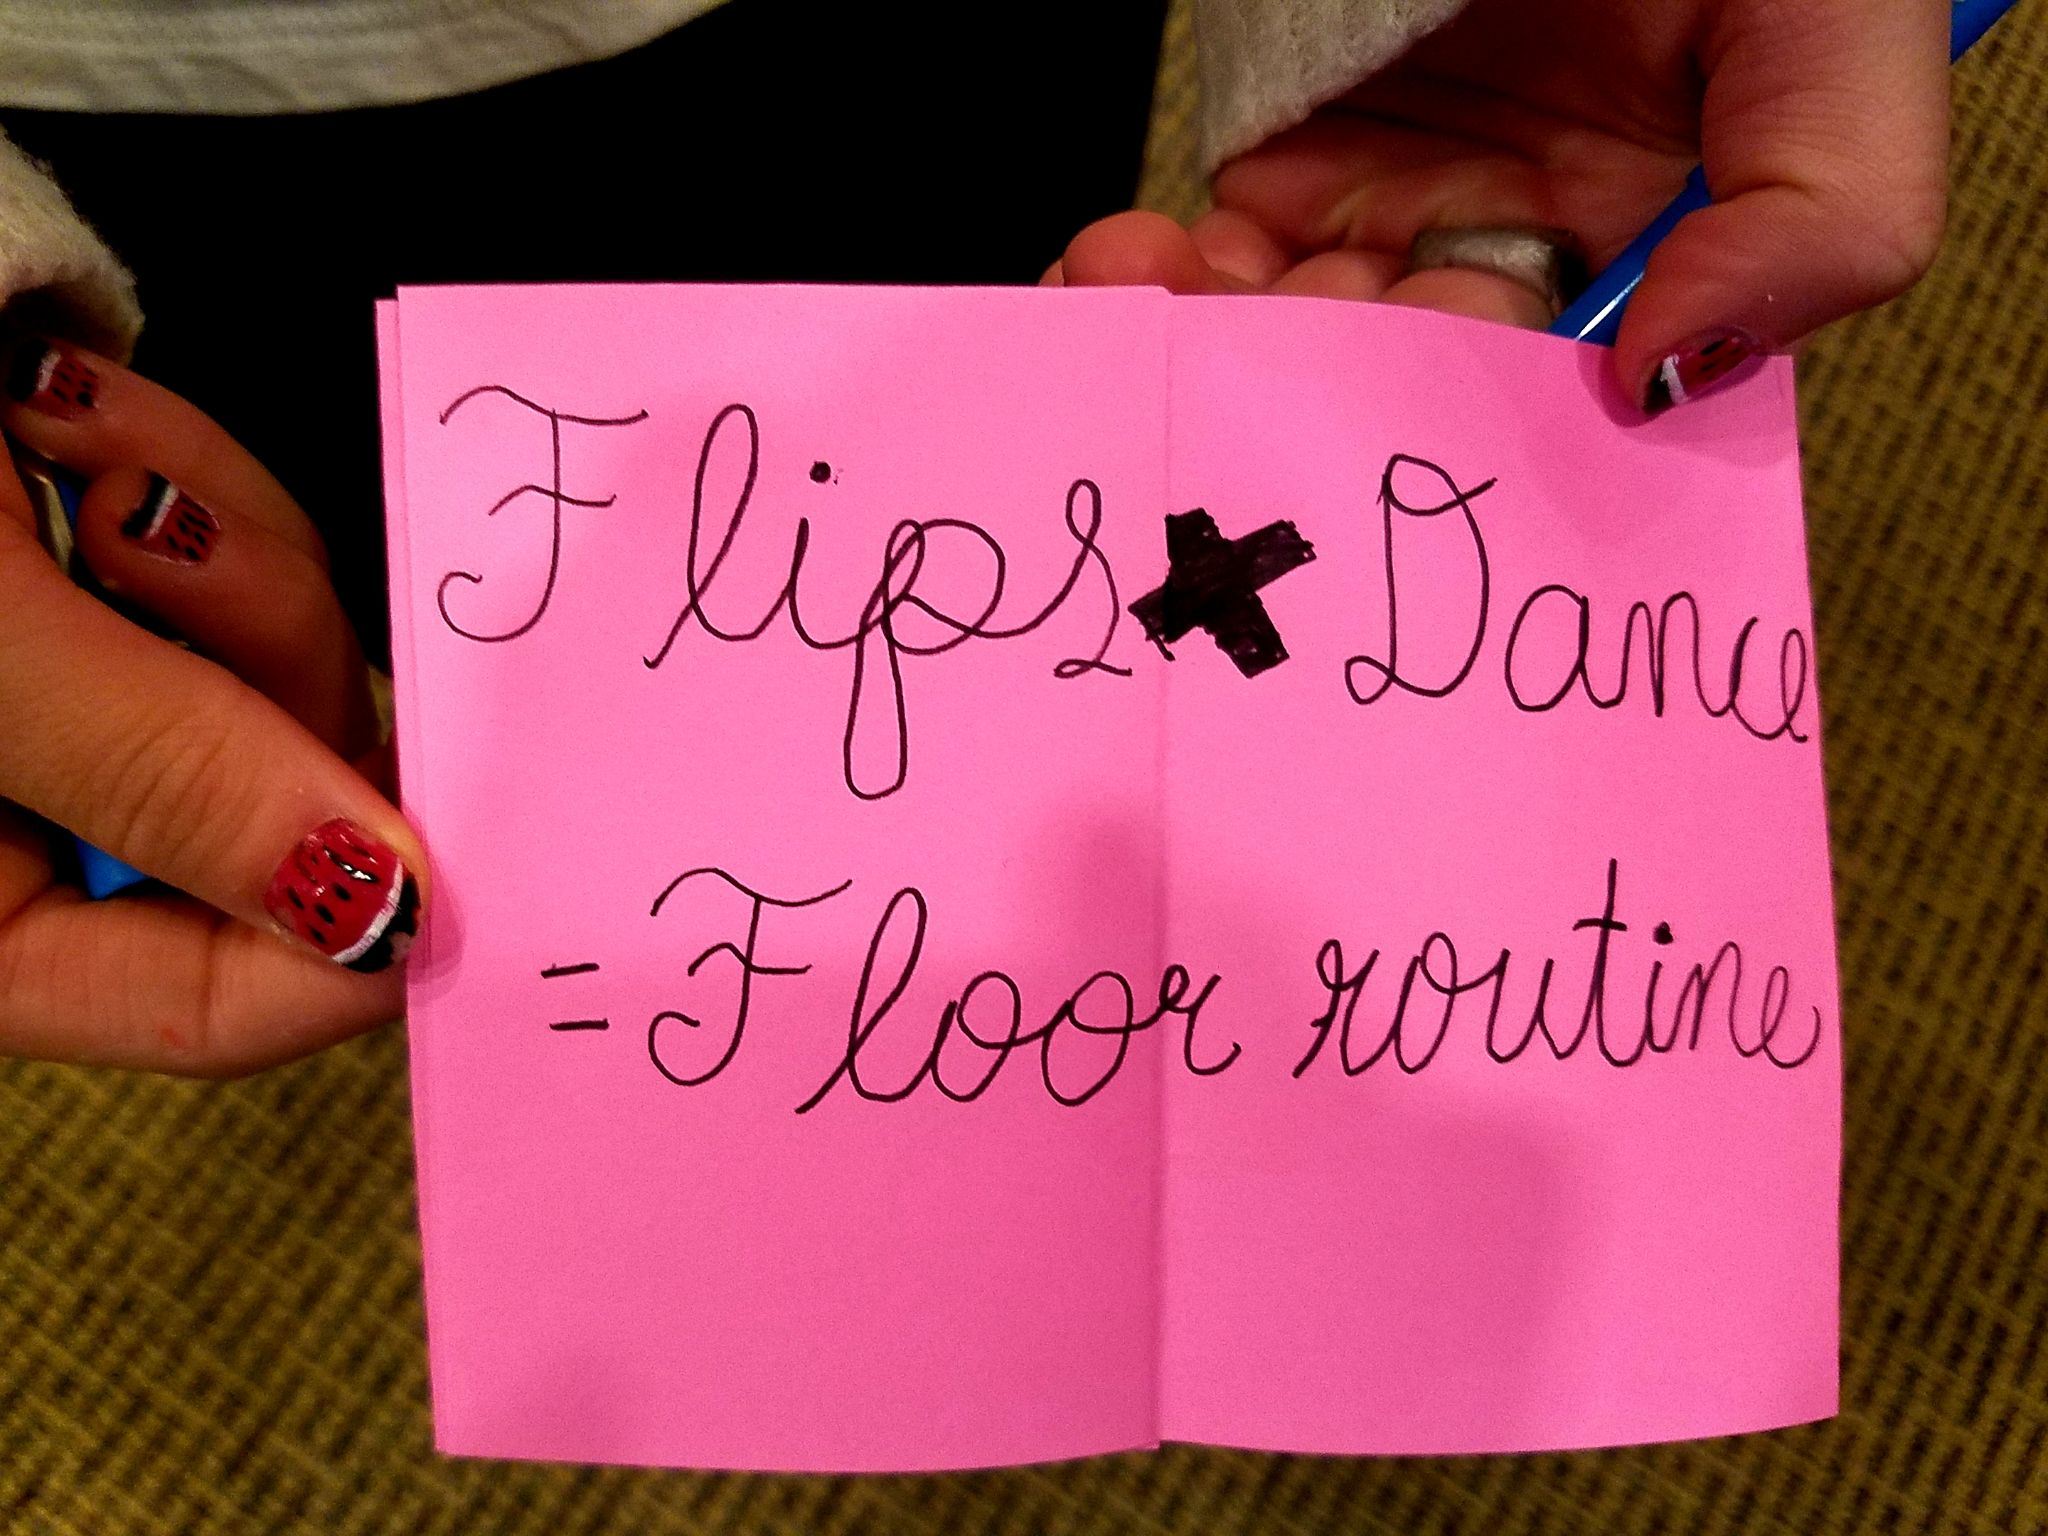 Flips × Dance
= Floor routine